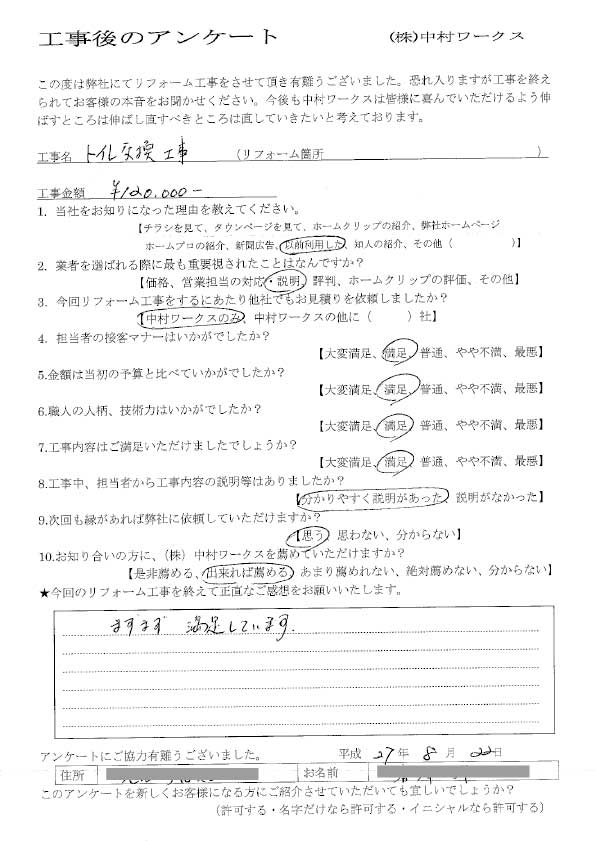 工事後のアンケート (株)中村ワークス
この度は弊社にてリフォーム工事をさせて頂き有難うございました。恐れ入りますが工事を終え
られてお客様の本音をお聞かせください。今後も中村ワークスは皆様に喜んでいただけるよう伸
ばすところは伸ばし直すべきところは直していきたいと考えております。
工事名 トイレ交換工事 (リフォーム箇所 )
工事金額 ¥120,000-
1. 当社をお知りになった理由を教えてください。
【チラシを見て、タウンページを見て、ホームクリップの紹介、弊社ホームページ
ホームプロの紹介、新聞広告、以前利用した、知人の紹介、その他( )】
2. 業者を選ばれる際に最も重要視されたことはなんですか?
【価格、営業担当の対応・説明、評判、ホームクリップの評価、その他】
3. 今回リフォーム工事をするにあたり他社でもお見積りを依頼しましたか?
【中村ワークスのみ、中村ワークスの他に( )社】
4. 担当者の接客マナーはいかがでしたか?
【大変満足、満足、普通、やや不満、最悪】
5.金額は当初の予算と比べていかがでしたか?
【大変満足、満足、普通、やや不満、最悪】
6.職人の人柄、技術力はいかがでしたか?
【大変満足、満足、普通、やや不満、最悪】
7.工事内容はご満足いただけましたでしょうか?
【大変満足、満足、普通、やや不満、最悪】
8.工事中、担当者から工事内容の説明等はありましたか?
【分かりやすく説明があった、説明がなかった】
9.次回も縁があれば弊社に依頼していただけますか?
【思う、思わない、分からない】
10.お知り合いの方に、(株)中村ワークスを薦めていただけますか?
【是非薦める、出来れば薦める、あまり薦めれない、絶対薦めない、分からない】
★今回のリフォーム工事を終えて正直なご感想をお願いいたします。
まずまず 満足しています.
アンケートにご協力有難うございました。 平成 27年 8月 22日
住所 お名前
このアンケートを新しくお客様になる方にご紹介させていただいても宜しいでしょうか?
(許可する・名字だけなら許可する・イニシャルなら許可する)